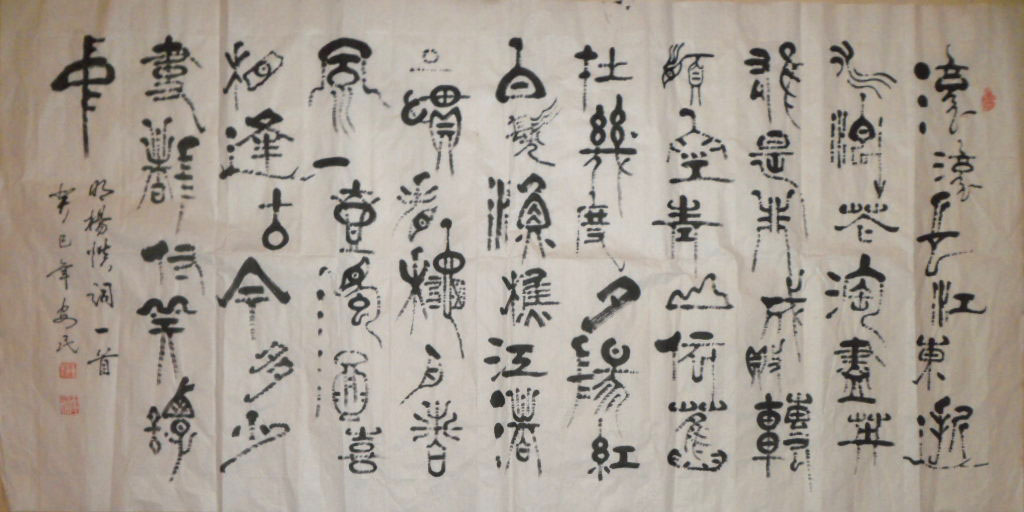 滾滾長江東逝
水浪花淘盡英
雄是非成敗轉
頭空青山依舊
在幾度夕陽紅
白髮漁樵江渚
上慣看秋月春
風一壺濁酒喜
相逢古今多少
事都付笑譚
中
明楊慎詞一首
癸巳年安民